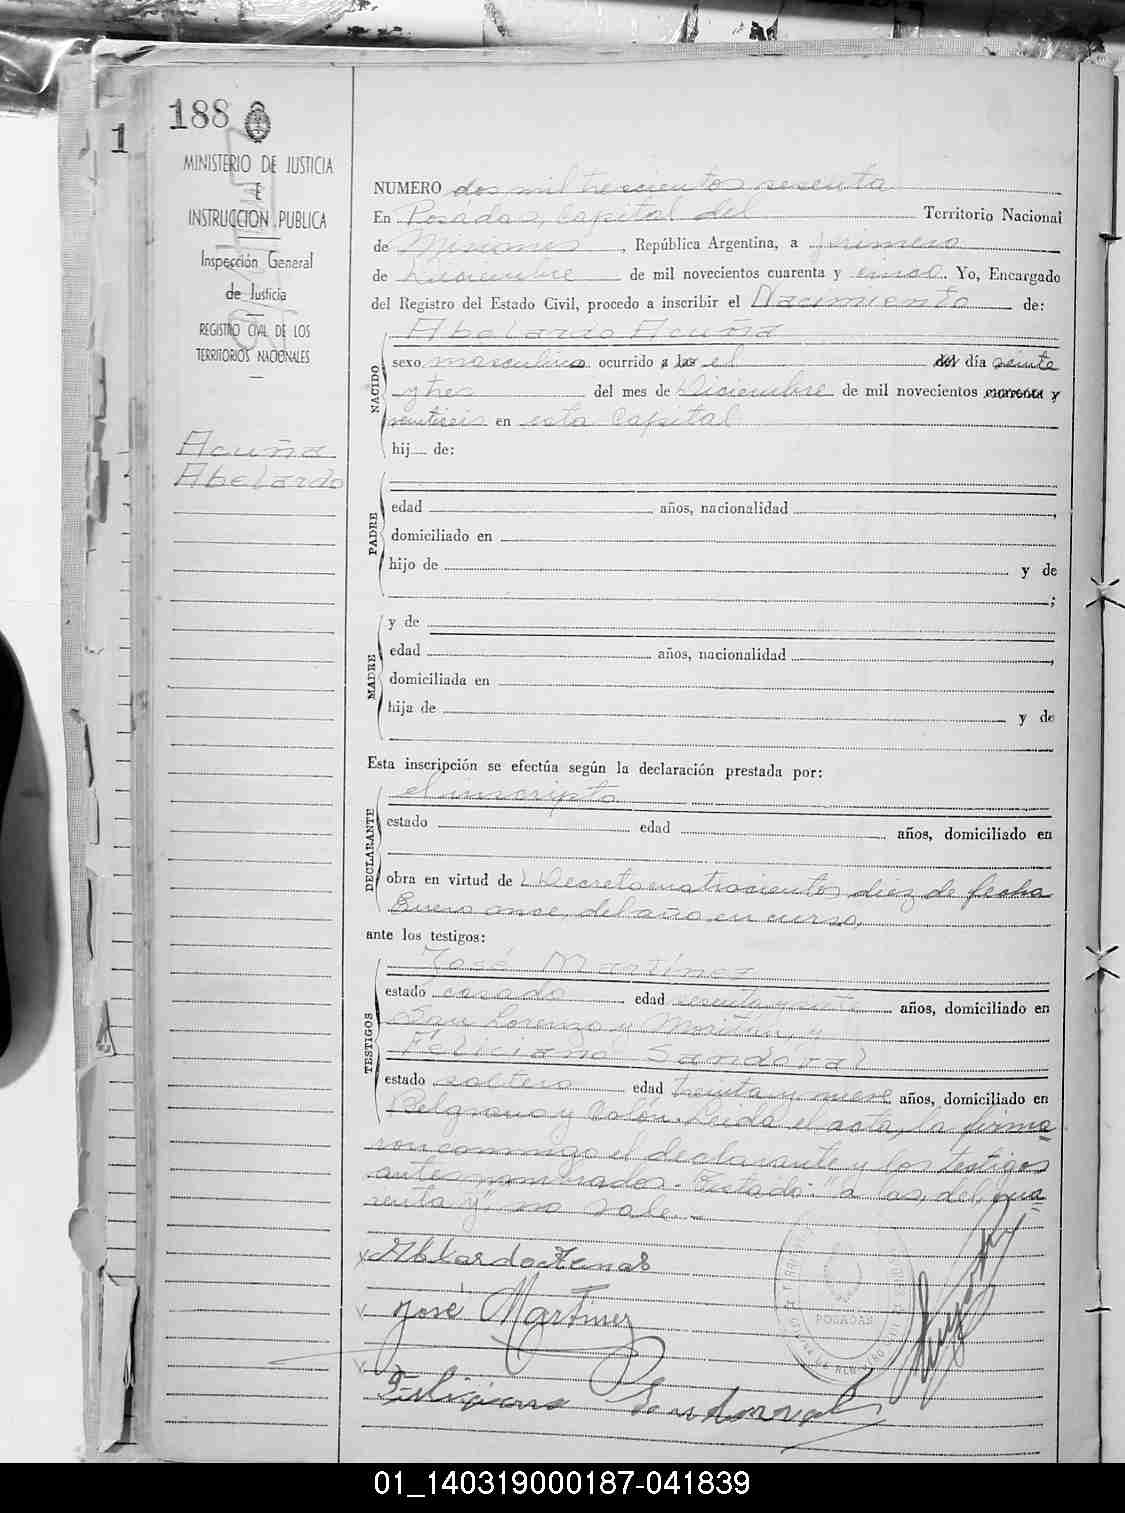 188
1
MINISTERIO DE JUSTICIA
E
INSTRUCCION PUBLICA
Inspección General
de Justicia
REGISTRO CIVIL DE LOS
TERRITORIOS NACIONALES
Acuña
Abelardo
NUMERO dos mil trescientos sesenta
En Posadas, Capital del Territorio Nacional
de Misiones, República Argentina, a primero
de Diciembre de mil novecientos cuarenta y cinco. Yo, Encargado
del Registro del Estado Civil, procedo a inscribir el Nacimiento de:
NACIDO
Abelardo Acuña
sexo masculino ocurrido a las el del día veinte
y tres del mes de Diciembre de mil novecientos cuarenta y
veintiseis en esta Capital
hij de:
PADRE
edad años, nacionalidad ,
domiciliado en
hijo de y de
;
MADRE
y de
edad años, nacionalidad ,
domiciliada en
hija de y de
Esta inscripción se efectúa según la declaración prestada por:
DECLARANTE
el inscripto
estado edad años, domiciliado en
obra en virtud de Decreto cuatrocientos diez de fecha
Enero once, del año en curso,
ante los testigos:
TESTIGOS
José Martínez
estado casado edad años, domiciliado en
San Lorenzo y y
Feliciano Sandoval
estado soltero edad treinta y nueve años, domiciliado en
Belgrano y Colón. Leida el acta, la firma=
ron conmigo el declarante y los testigos
antes nombrados. Testado: "a las, del, cua=
renta y", no vale.
José Martinez
Feliciano Sandoval
POSADAS
01_140319000187-041839